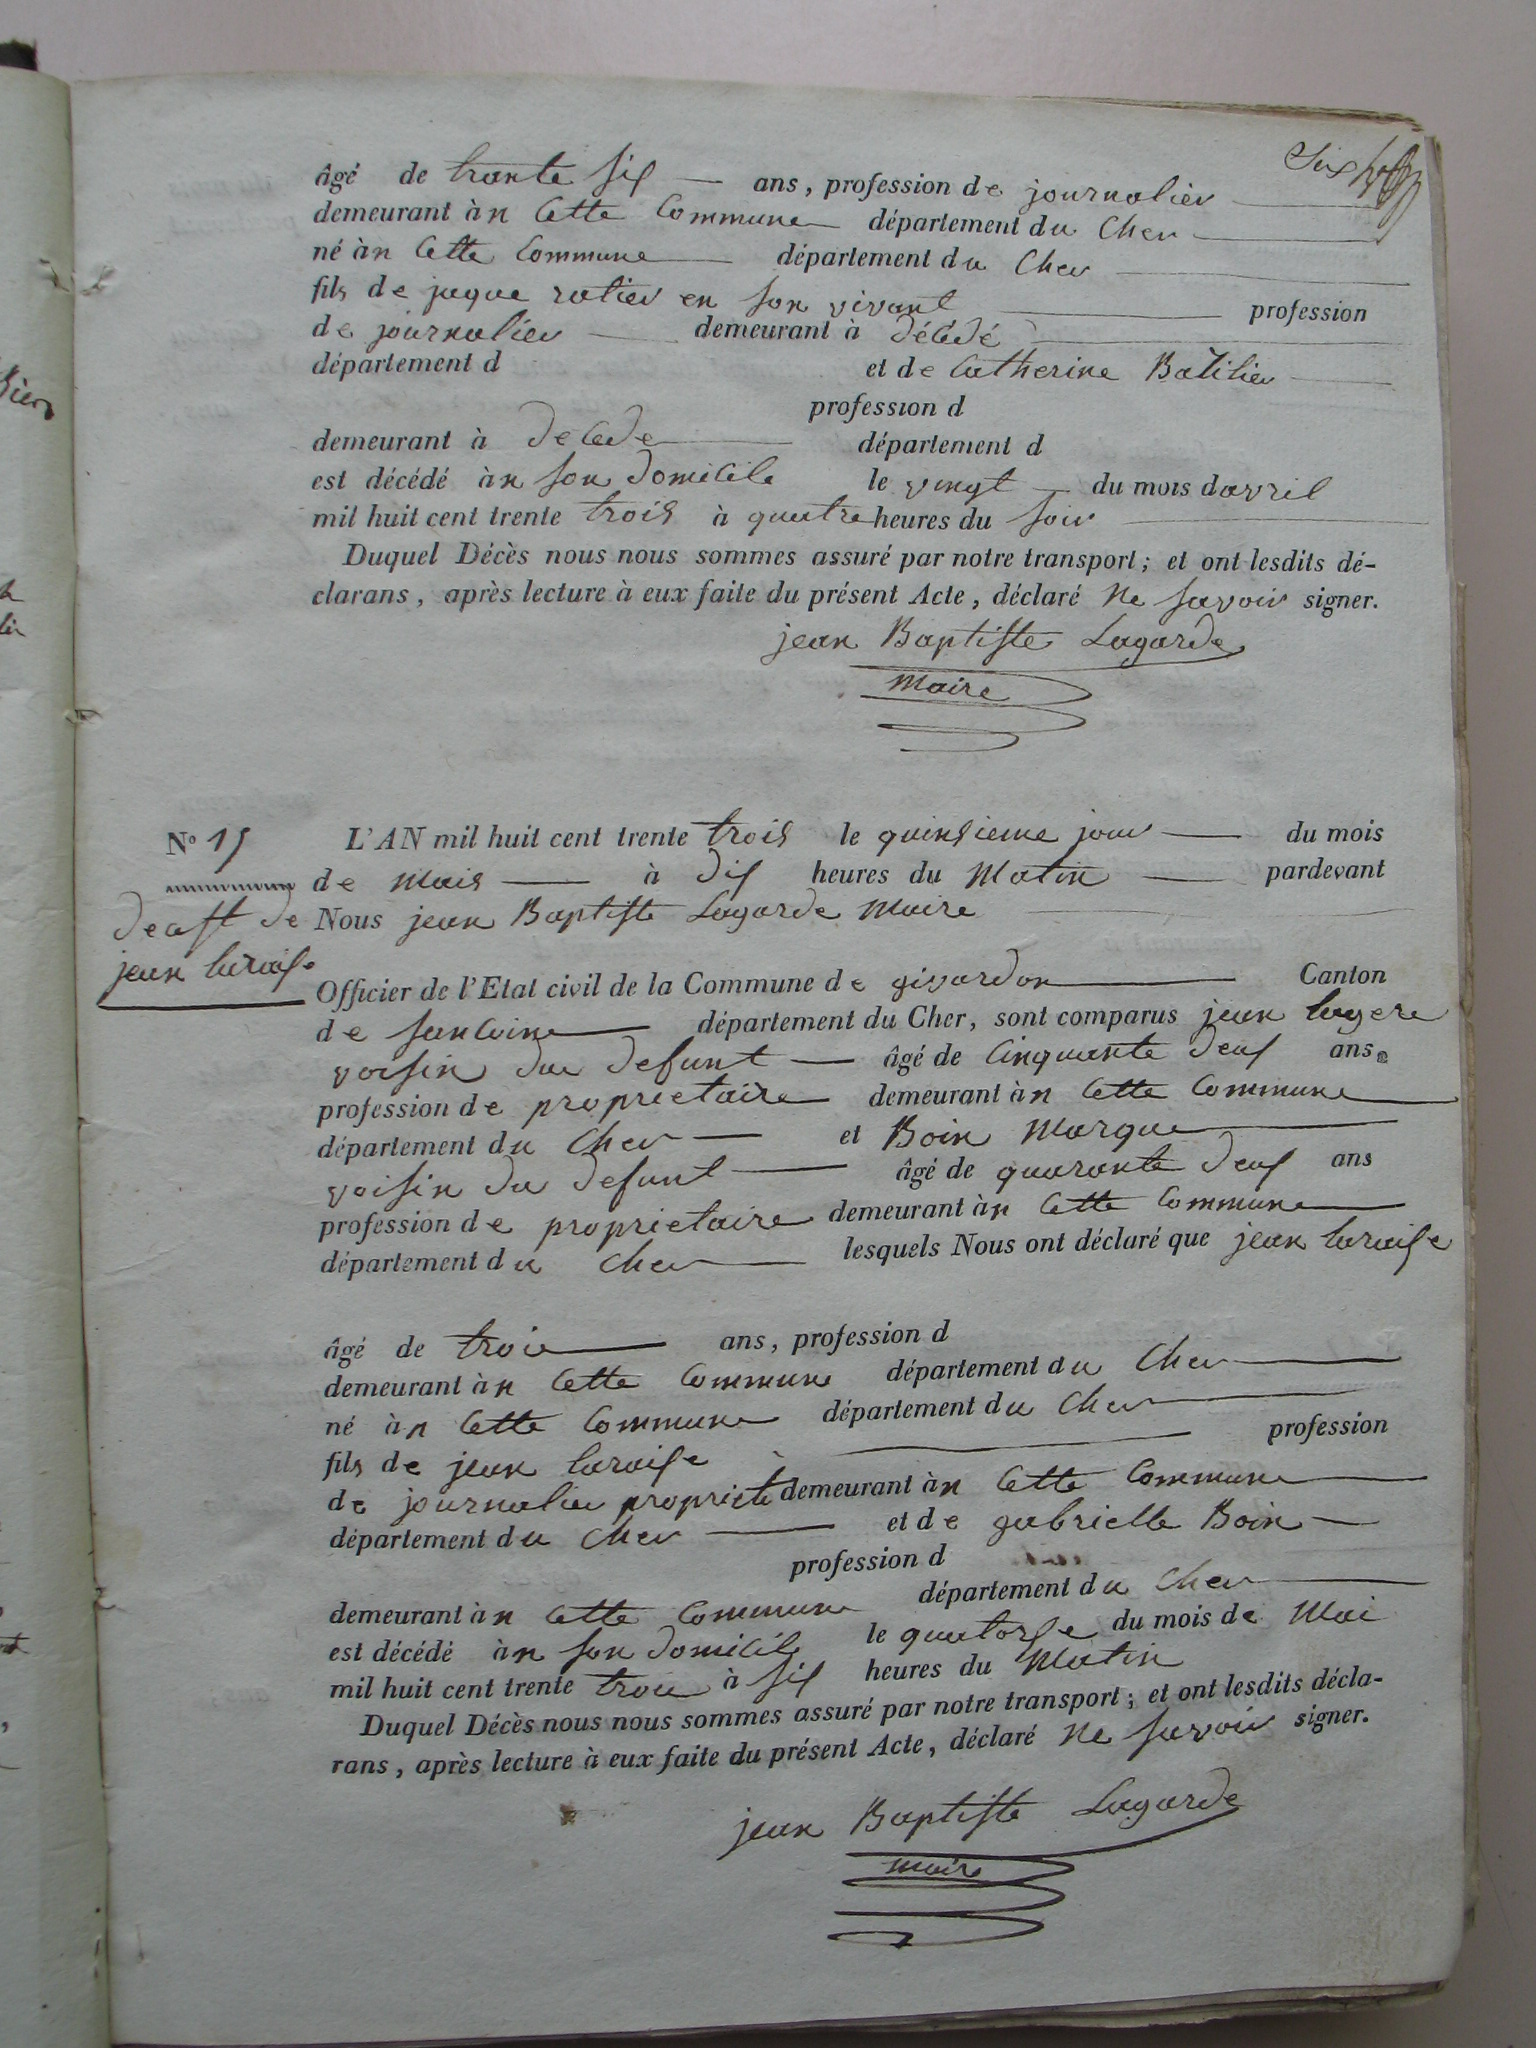 Six
âgé de trante six ans, profession de journalier
demeurant àn Cette Commune département du Cher
né àn Cette Commune département du Cher
fils de jaque ratier en son vivant profession
de journalier demeurant à décédé
département d et de Catherine
profession d
demeurant à decede département d
est décédé àn son domicile le vingt du mois davril
mil huit cent trente trois à quatre heures du soir
Duquel Décès nous nous sommes assuré par notre transport; et ont lesdits dé-
clarans, après lecture à eux faite du présent Acte, déclaré Ne savoir signer.
jean Baptiste Lagarde
maire
N° 15 L'AN mil huit cent trente trois le quinsieme jour du mois
de Mais à dix heures du Matin pardevant
de Nous jean Baptiste Lagarde Maire
jean laraise
Officier de l'Etat civil de la Commune de givardon Canton
de sancoine département du Cher, sont comparus jean
voisin du defunt âgé de Cinquante deux ans
profession de proprietaire demeurant àn Cette Commune
département du Cher et Boin Marque
voisin du defunt âgé de quarante deux ans
profession de proprietaire demeurant àn Cette Commune
département du Cher lesquels Nous ont déclaré que jean laraise
âgé de trois ans, profession d
demeurant àn Cette Commune département du Cher
né àn Cette Commune département du Cher
fils de jean laraise profession
de journalier propriete demeurant àn Cette Commune
département du Cher et de gabrielle Boin
profession d
demeurant àn Cette Commune département du Cher
est décédé àn son domicile le quatorse du mois de Mai
mil huit cent trente trois à six heures du Matin
Duquel Décès nous nous sommes assuré par notre transport; et ont lesdits décla-
rans, après lecture à eux faite du présent Acte, déclaré Ne savoir signer.
jean Baptiste Lagarde
maire